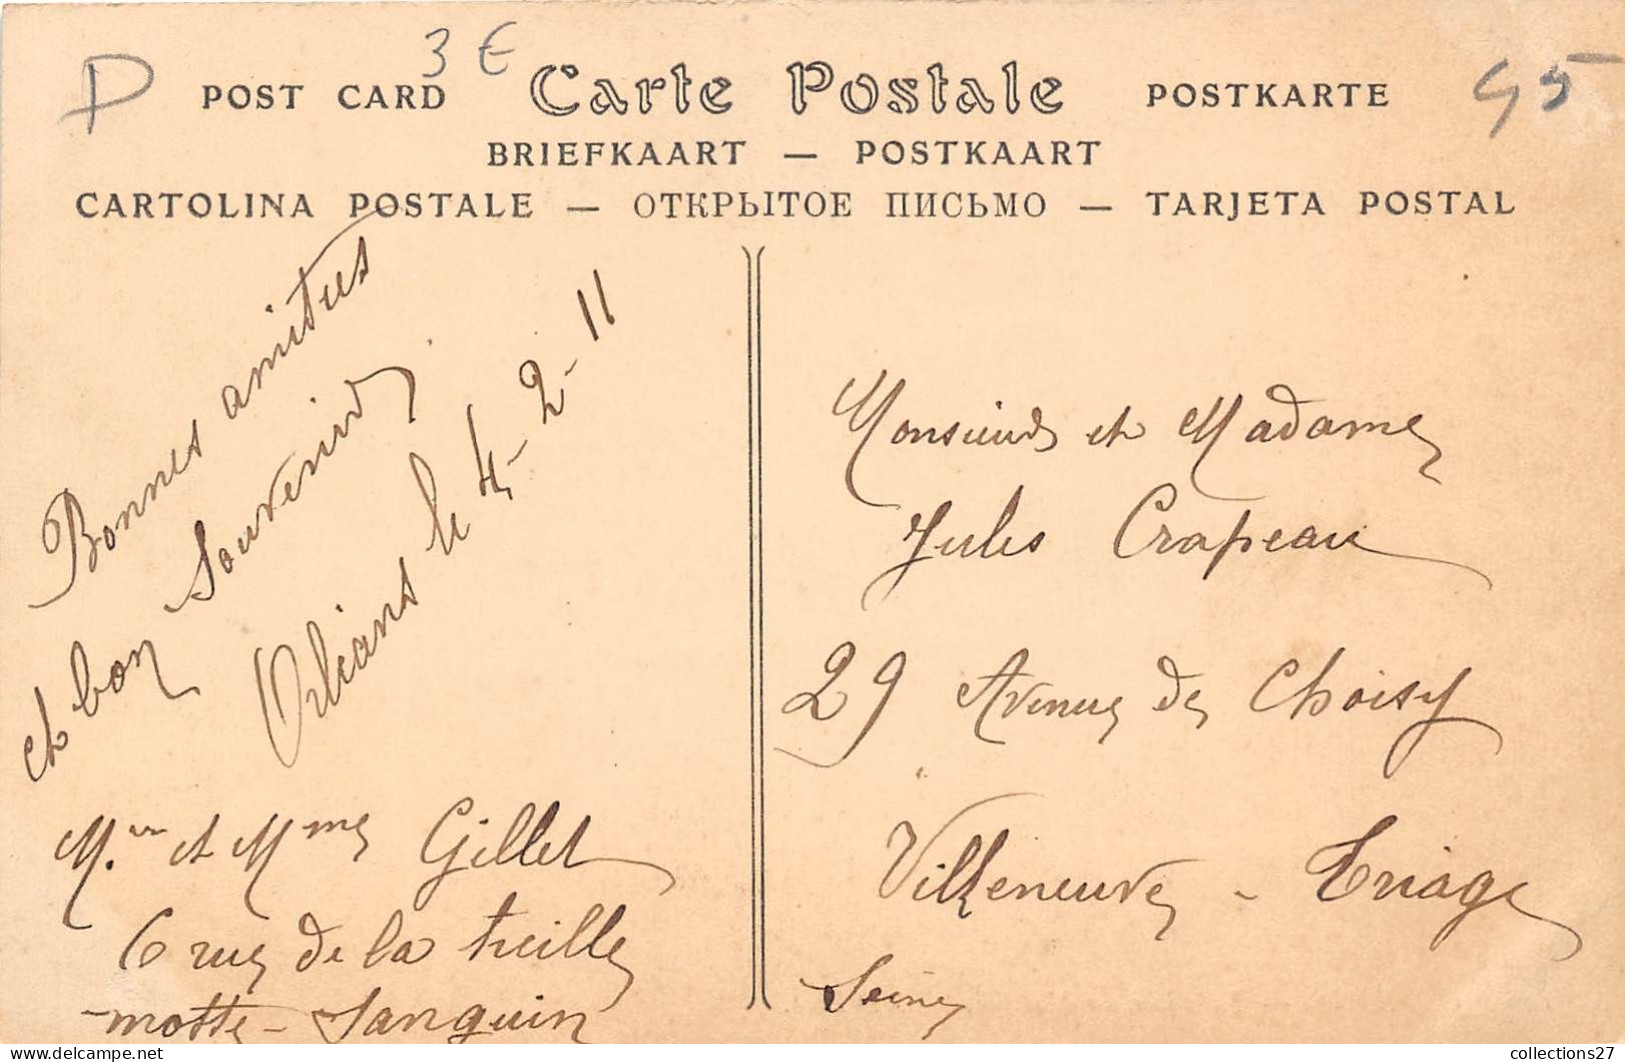 D 3 €
POST CARD Carte Postale POSTKARTE
45
BRIEFKAART — POSTKAART
CARTOLINA POSTALE — ОТКРЫТОЕ ПИСЬМО — TARJETA POSTAL
Bonnes amitiés
et bon Souvenir
Orléans le 4-2-11
M. et Mme Gillet
6 rue de la treille
motte-Sanguin
Monsieur et Madame
Jules Crapeau
29 Avenue de Choisy
Villeneuve - Triage
Seine
collections27